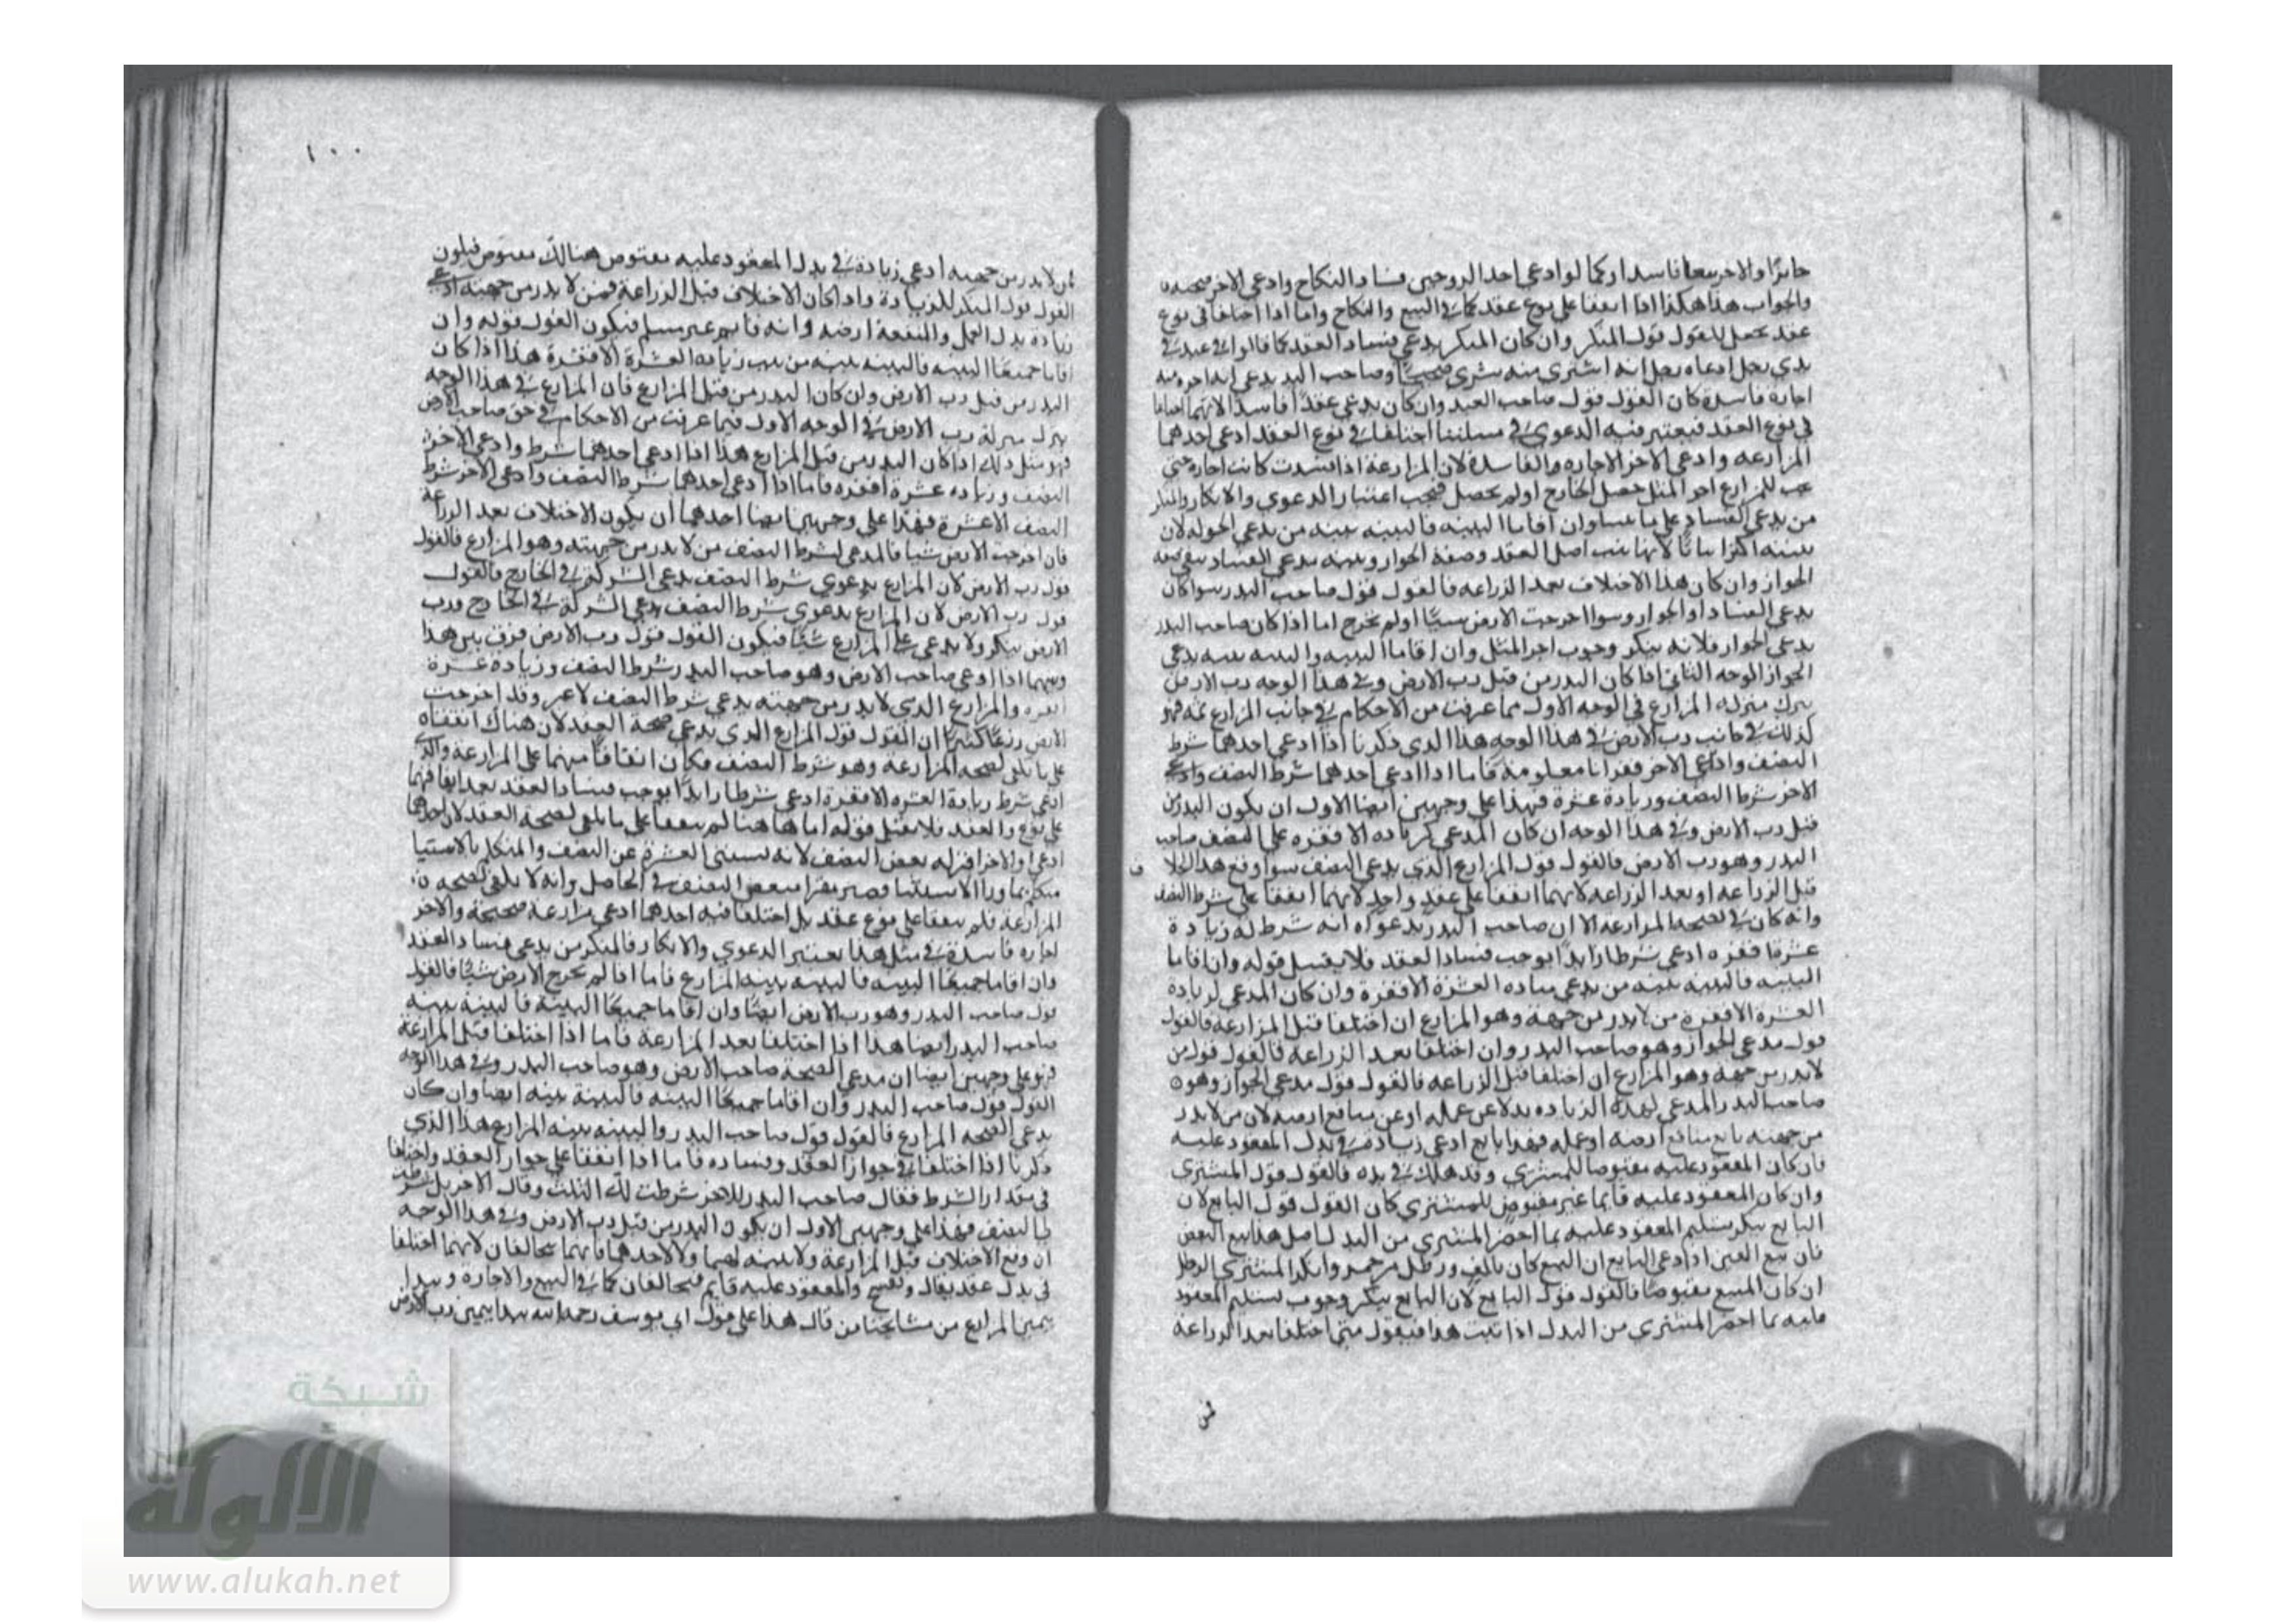 جايزا والاخر بيعا فاسدا وكما لو ادعى احد الزوجين فساد النكاح وادعى الاخر صحته
والجواب هذا هكذا اذا اتفقا على نوع عقد كما في البيع والنكاح واما اذا اختلفا في نوع
عقد يجعل القول قول المنكر وان كان المنكر يدعي فساد العقد كما قالوا في عبد في
يدي رجل ادعاه رجل انه اشترى منه شرى صحيحا وصاحب اليد يدعي انه اجره منه
اجارة فاسدة كان القول قول صاحب العبد وان كان يدعي عقدا فاسدا لانهما اختلفا
في نوع العقد فيعتبر فيه الدعوى وفي مسئلتنا اختلفا في نوع العقد ادعى احدهما
المزارعة وادعى الاخر الاجارة والفاسدة لان المزارعة اذا فسدت كانت اجارة حتى
يجب للمزارع اجر المثل حصل الخارج او لم يحصل فيجب اعتبار الدعوى والانكار والمنكر
من يدعي الفساد على ما بينا وان اقاما البينة فالبينة بينة من يدعي الجواز لان
بينته اكثر اثباتا لانها تثبت اصل العقد وصفة الجواز وبينة مدعي الفساد تنفي صفة
الجواز وان كان هذا الاختلاف بعد الزراعة فالقول قول صاحب البدر سوا كان
يدعي الفساد او الجواز وسوا اخرجت الارض شيئا او لم تخرج اما اذا كان صاحب البدر
يدعي الجواز فلانه ينكر وجوب اجر المثل وان اقاما البينة والبينة بينة يدعي
الجواز الوجه الثاني اذا كان البدر من قبل رب الارض وفي هذا الوجه رب الارض
ينزل منزلة المزارع في الوجه الاول مما عرفت من الاحكام في جانب المزارع ثمه فهو
كذلك في جانب رب الارض في هذا الوجه هذا الذي ذكرنا اذا ادعى احدهما شرط
النصف وادعى الاخر قفزانا معلومة فاما اذا ادعى احدهما شرط النصف وادعى
الاخر شرط النصف وزيادة عشرة فهذا على وجهين ايضا الاول ان يكون البدر من
قبل رب الارض وفي هذا الوجه ان كان المدعي لزيادة الاقفزة على النصف صاحب
البدر وهو رب الارض فالقول قول المزارع الذي يدعي النصف سوا وقع هذا الخلا ف
قبل الزراعة او بعد الزراعة لانهما اتفقا على عقد واحد لانهما اتفقا على شرط النصف
وانه كان في لصحة المزارعة الا ان صاحب البدر بدعواه انه شرط له زيادة
عشرة اقفزة ادعى شرطا زايدا يوجب فساد العقد فلا يقبل قوله وان اقاما
البينة فالبينة بينة من يدعي زيادة العشرة الاقفزة وان كان المدعي لزيادة
العشرة الاقفزة من لا بدر من جهته وهو المزارع ان اختلفا قبل المزارعة فالقول
قول مدعي الجواز وهو صاحب البدر وان اختلفا بعد الزراعة فالقول قول من
لا بدر من جهته وهو المزارع ان اختلفا قبل الزراعة فالقول قول مدعي الجواز وهو
صاحب البدر المدعي لهذه الزيادة بدلا عن عمله او عن منافع ارضه لان من لا بدر
من جهته بايع منافع ارضه او عمله فهذا بايع ادعى زيادة في بدل المعقود عليه
فان كان المعقود عليه مقبوضا للمشتري وقد هلك في يده فالقول قول المشتري
وان كان المعقود عليه قايما غير مقبوض للمشتري كان القول قول البايع لان
البايع ينكر تسليم المعقود عليه بما احضر المشتري من البدل اصل هذا بيع العين
فان بيع العين اذا ادعى البايع ان البيع كان بالف ورطل من خمر وانكر المشتري الرطل
ان كان المبيع مقبوضا فالقول قول البايع لان البايع ينكر وجوب تسليم المعقود
عليه بما احضر المشتري من البدل اذا ثبت هذا فيقول متى اختلفا بعد الزراعة
فمن
١٠٠
فمن لا بدر من جهته ادعى زيادة في بدل المعقود عليه مقبوض هنالك مقبوض فيكون
القول قول المنكر للزيادة واذا كان الاختلاف قبل الزراعة فمن لا بدر من جهته ادعى
زيادة بدل العمل والمنفعة ارضه وانه قايم غير مسلم فيكون القول قوله وان
اقاما جميعا البينة فالبينة بينة من يثبت زيادة العشرة الاقفزة هذا اذا كان
البدر من قبل رب الارض وان كان البدر من قبل المزارع فان المزارع في هذا الوجه
ينزل منزلة رب الارض في الوجه الاول فيما عرفت من الاحكام في حق صاحب الارض
فهو مثل ذلك اذا كان البدر من قبل المزارع هذا اذا ادعى احدهما شرط وادعى الاخر
النصف وزيادة عشرة اقفزة فاما اذا ادعى احدهما شرط النصف وادعى الاخر شرط
النصف الا عشرة فهذا على وجهين ايضا احدهما ان يكون الاختلاف بعد الزراعة
فان اخرجت الارض شيا فالمدعي لشرط النصف من لا بدر من جهته وهو المزارع فالقول
قول رب الارض لان المزارع بدعوى شرط النصف يدعي الشركة في الخارج فالقول
قول رب الارض لان المزارع بدعوى شرط النصف يدعي الشركة في الخارج ورب
الارض ينكر ولا يدعي على المزارع شيئا فيكون القول قول رب الارض فرق بين هذا
وبينما اذا ادعى صاحب الارض وهو صاحب البدر شرط النصف وزيادة عشرة
اقفزة والمزارع الذي لا بدر من جهته يدعي شرط النصف لا غير وقد اخرجت
الارض زرعا كثيرا ان القول قول المزارع الذي يدعي صحة العقد لان هناك اتفقاه
على ما يكفي لصحة المزارعة وهو شرط النصف فكان اتفاقا منهما على المزارعة والذي
ادعى شرط زيادة العشرة الاقفزة ادعى شرطا زايدا يوجب فساد العقد بعد اتفاقهما
على نوع والعقد فلا يقبل قوله اما هاهنا لم يتفقا على ما يكفي لصحة العقد لان احدهما
ادعى والاخر اقر له بعض النصف لانه استثنى العشرة عن النصف والمتكلم بالاستثنا
متكلم بما ورا الاستثنا فصير مقرا ببعض النصف في الحاصل وانه لا يكفي لصحة
المزارعة فلم يتفقا على نوع عقد بل اختلفا فيه احدهما ادعى مزارعة صحيحة والاخر
اجارة فاسدة في مثل هذا يعتبر الدعوى والانكار فالمنكر من يدعي فساد العقد
وان اقاما جميعا البينة فالبينة بينة المزارع فاما اذا لم تخرج الارض شيئا فالقول
قول صاحب البدر وهو رب الارض ايضا وان اقاما جميعا البينة فالبينة بينة
صاحب البدر ايضا هذا اذا اختلفا بعد المزارعة فاما اذا اختلفا قبل المزارعة
فهو على وجهين ايضا ان مدعي الصحة صاحب الارض وهو صاحب البدر وفي هذا الوجه
القول قول صاحب البدر وان اقاما جميعا البينة فالبينة بينته ايضا وان كان
يدعي الصحة المزارع فالقول قول صاحب البدر والبينة بينة المزارع هذا الذي
ذكرنا اذا اختلفا في جواز العقد وفساده فاما اذا اتفقا على جواز العقد واختلفا
في مقدار الشرط فقال صاحب البدر للاخر شرطت لك الثلث وقال الاخر بل شرطت
لي النصف فهذا على وجهين الاول ان يكون البدر من قبل رب الارض وفي هذا الوجه
ان وقع الاختلاف قبل المزارعة ولا بينة لهما ولا لاحدهما فانهما يتحالفان لانهما اختلفا
في بدل عقد يقال ويفسخ والمعقود عليه قايم فيتحالفان كما في البيع والاجارة ويبدا
بيمين المزارع من مشايخنا من قال هذا على قول ابي يوسف رحمه الله يبدا بيمين رب الارض
شبكة
الألوكة
www.alukah.net